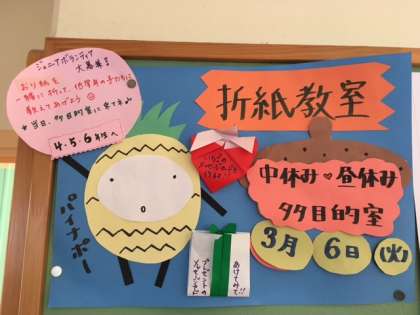 ジュニアボランティア
大募集!!
おり紙を
一緒に折って、低学年の子たちに
教えてあげよう☺
★当日、多目的室に来てネ♪
4.5.6年生へ
折紙教室
中休み♥昼休み
多目的室
3月6日(火)
パイナポー
あけてみて!!
プレゼントの